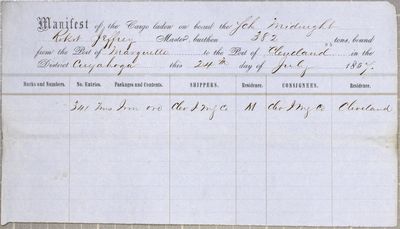 Manifest of the Cargo laden on board the Sch Midnight
Robt Jeffrey Master, burthen 382 tons, bound
from the Port of Marquette to the Port of Cleveland in the
District Cuyahoga this 24th day of July 185
Marks and Numbers. No. Entries. Packages and Contents. SHIPPERS. Residence. CONSIGNEES. Residence.
Tons Iron ore Clev I Mg Co M Clev I Mg Co Cleveland